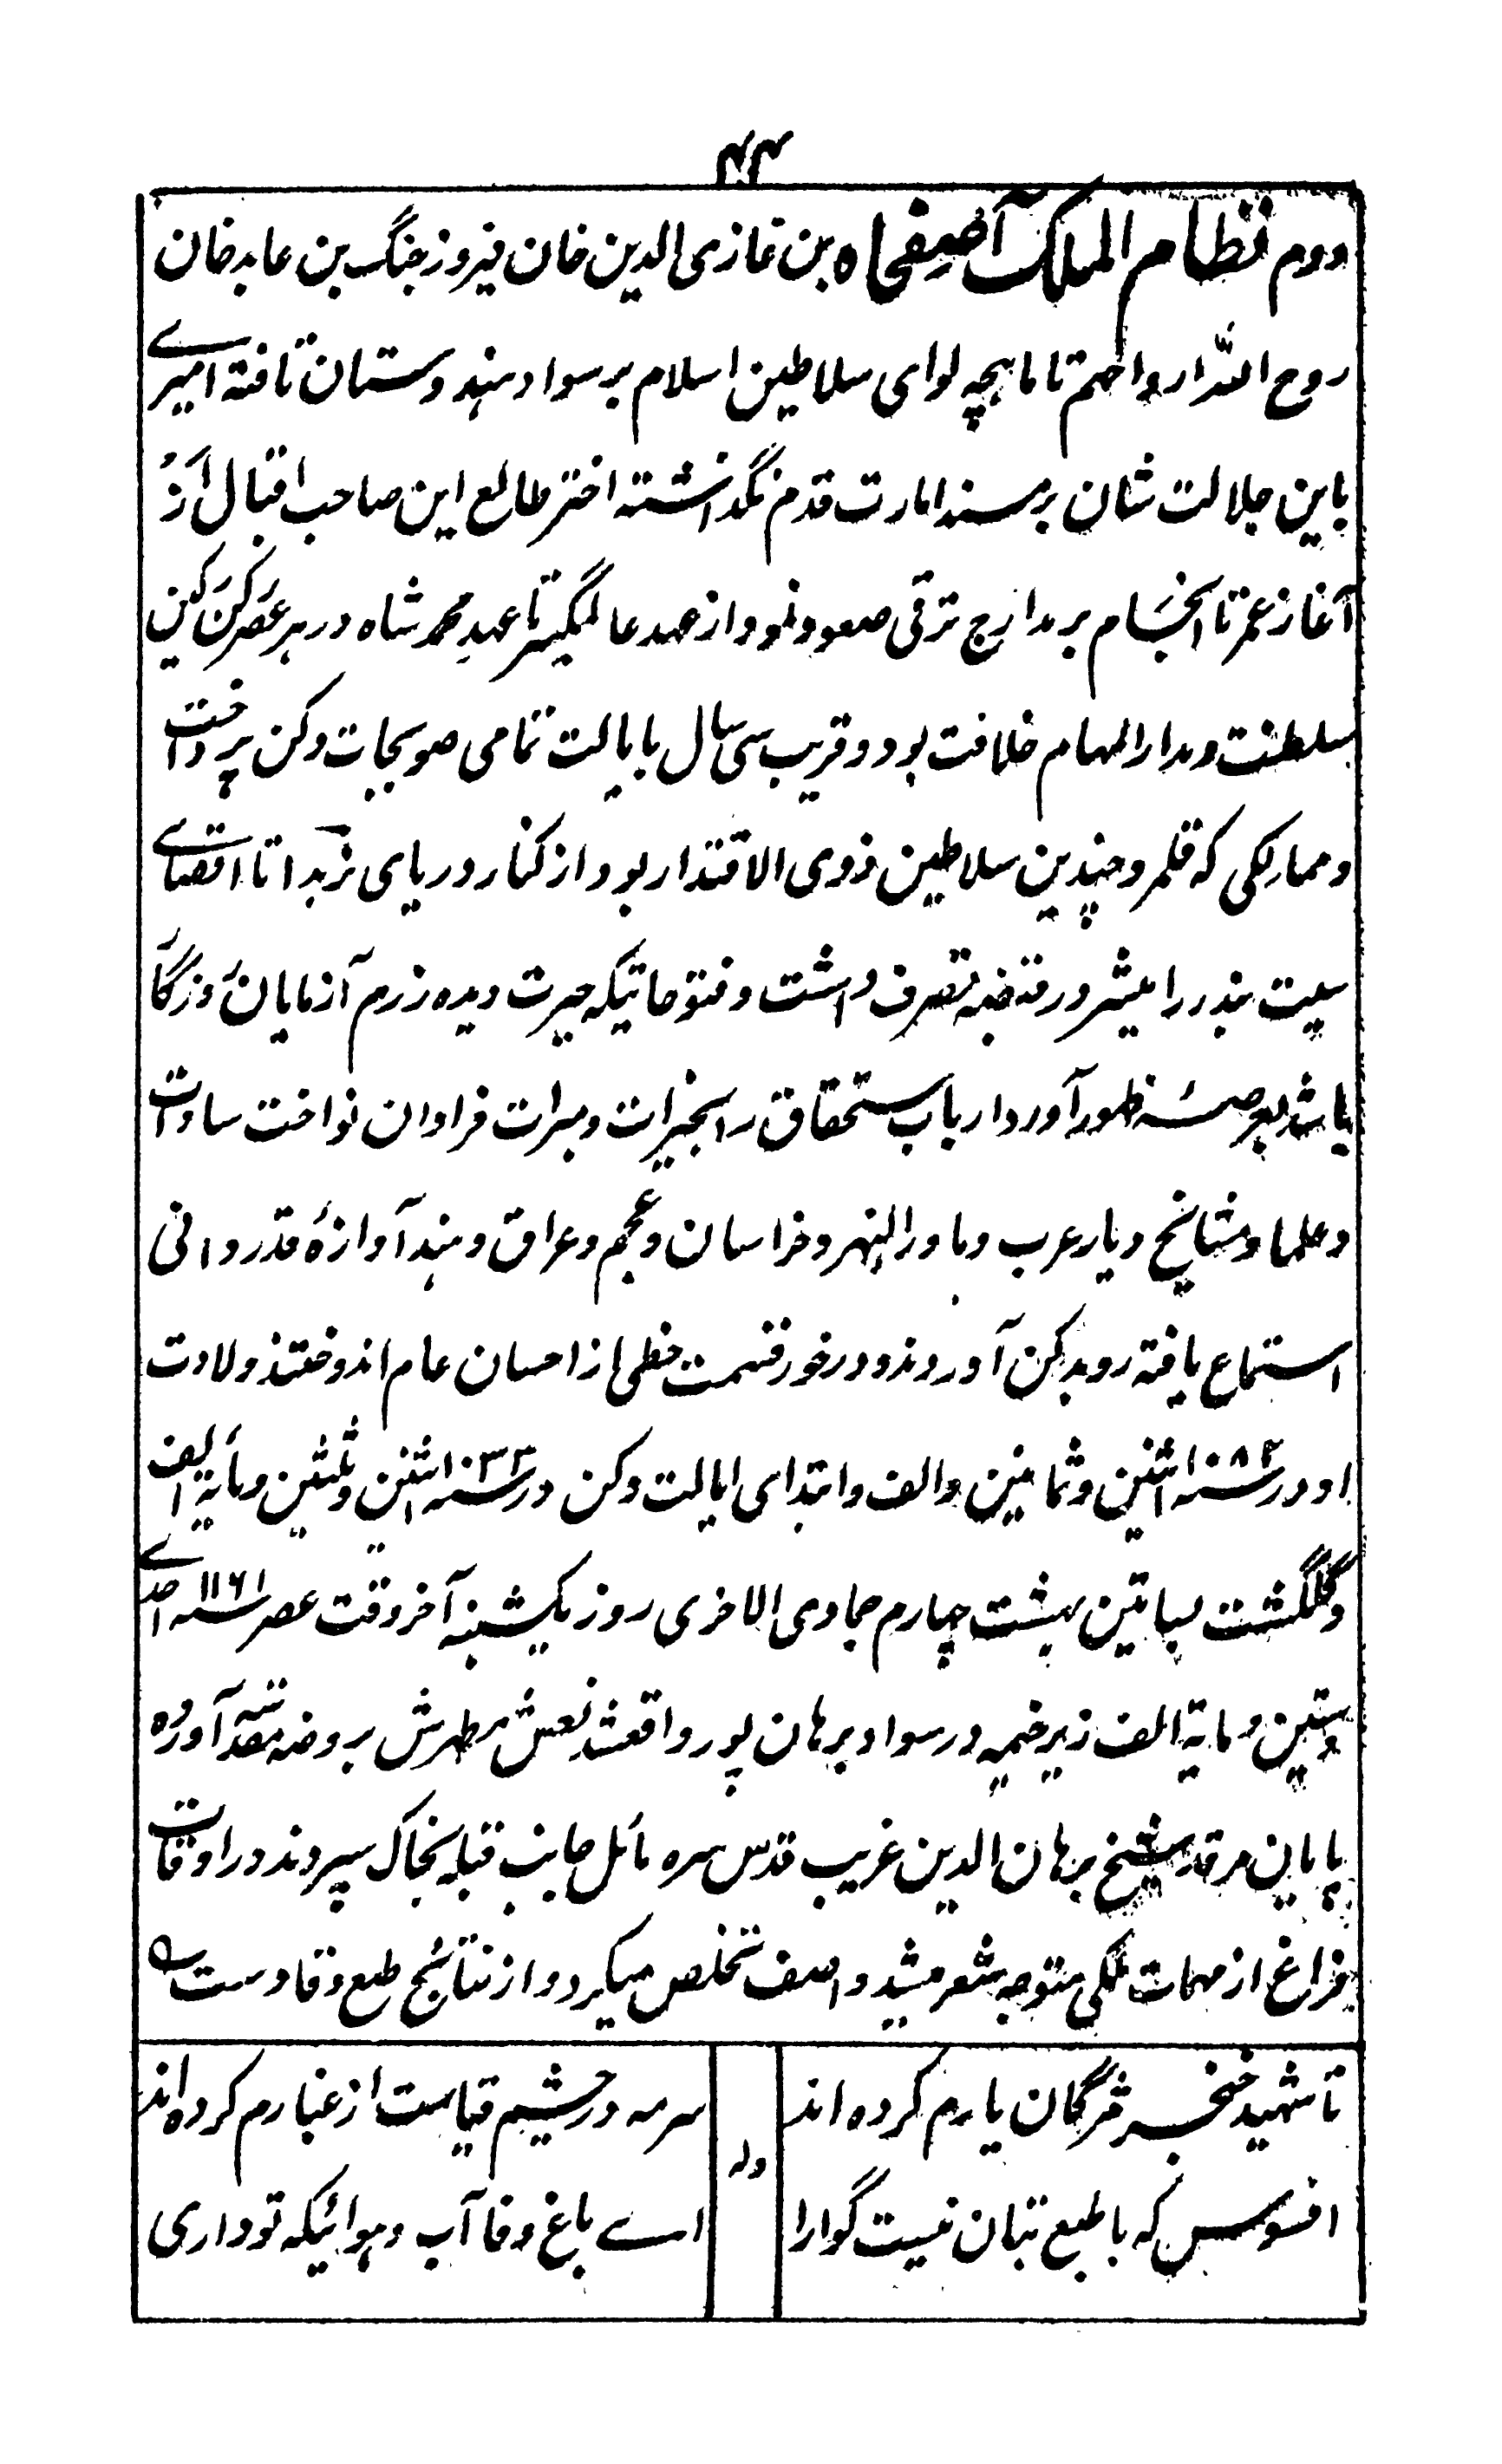 ۴۴
دوم نظام الملک آصفجاه بن غازی الدین خان فیروز جنگ بن عابد خان
روح الله ارواحهم تا ماهچه لوای سلاطین اسلام بر سواد هندوستان تافته امیرے
باین جلالت شان بر مسند امارت قدم نگذاشته اختر طالع این صاحب اقبال از
آغاز عمر تا انجام بر مدارج ترقی صعود نمود و از عهد عالمگیر تا عهد محمد شاه در هر عصر رکن رکین
سلطنت و مدار المهام خلافت بود و قریب سی سال بایالت تمامی صوبجات دکن پرداخت
و ممالکی که قلمرو چندین سلاطین ذوی الاقتدار بود از کنار دریای نربدا تا اقصاے
سیت بندر رامیشر در قبضه تصرف داشت و فتوحاتیکه حیرت دیده رزم آزمایان روزگار
باشد بعرصه ظهور آورد ارباب استحقاق را بخیرات و مبرات فراوان نواخت سادات
و علما و مشایخ دیار عرب و ماورالنهر و خراسان و عجم و عراق و هند آوازهٔ قدردانی
استماع یافته رو بدکن آوردند و در خور قسمت حظی از احسان عام اندوختند ولادت
او در سنه ۱۰۸۲ اثنین و ثمانین و الف و ابتدای ایالت دکن در سنه اثنین و ثلثین و مأیة الف
و گلگشت بساتین بهشت چهارم جمادی الاخری روز یکشنبه آخر وقت عصر سنه ۱۱۶۱ احدے
و ستین و مایة الف زیر خمیه در سواد برهان پور واقع شد نعش مطهرش بروضه مقدسه آورده
پایان مرقد شیخ برهان الدین غریب قدس سره مائل جانب قبله بخاک سپردند در اوقات
فراغ از مهمات ملکی متوجه شعر میشد و اصف تخلص میکرد و از نتائج طبع وقاد اوست
تا شهید خنجر مژگان یارم کرده اند سرمه در چشم قیامت از غبارم کرده اند
وله
افسوس که با طبع بتان نیست گوارا اے باغ وفا آب و هوائیکه تو داری